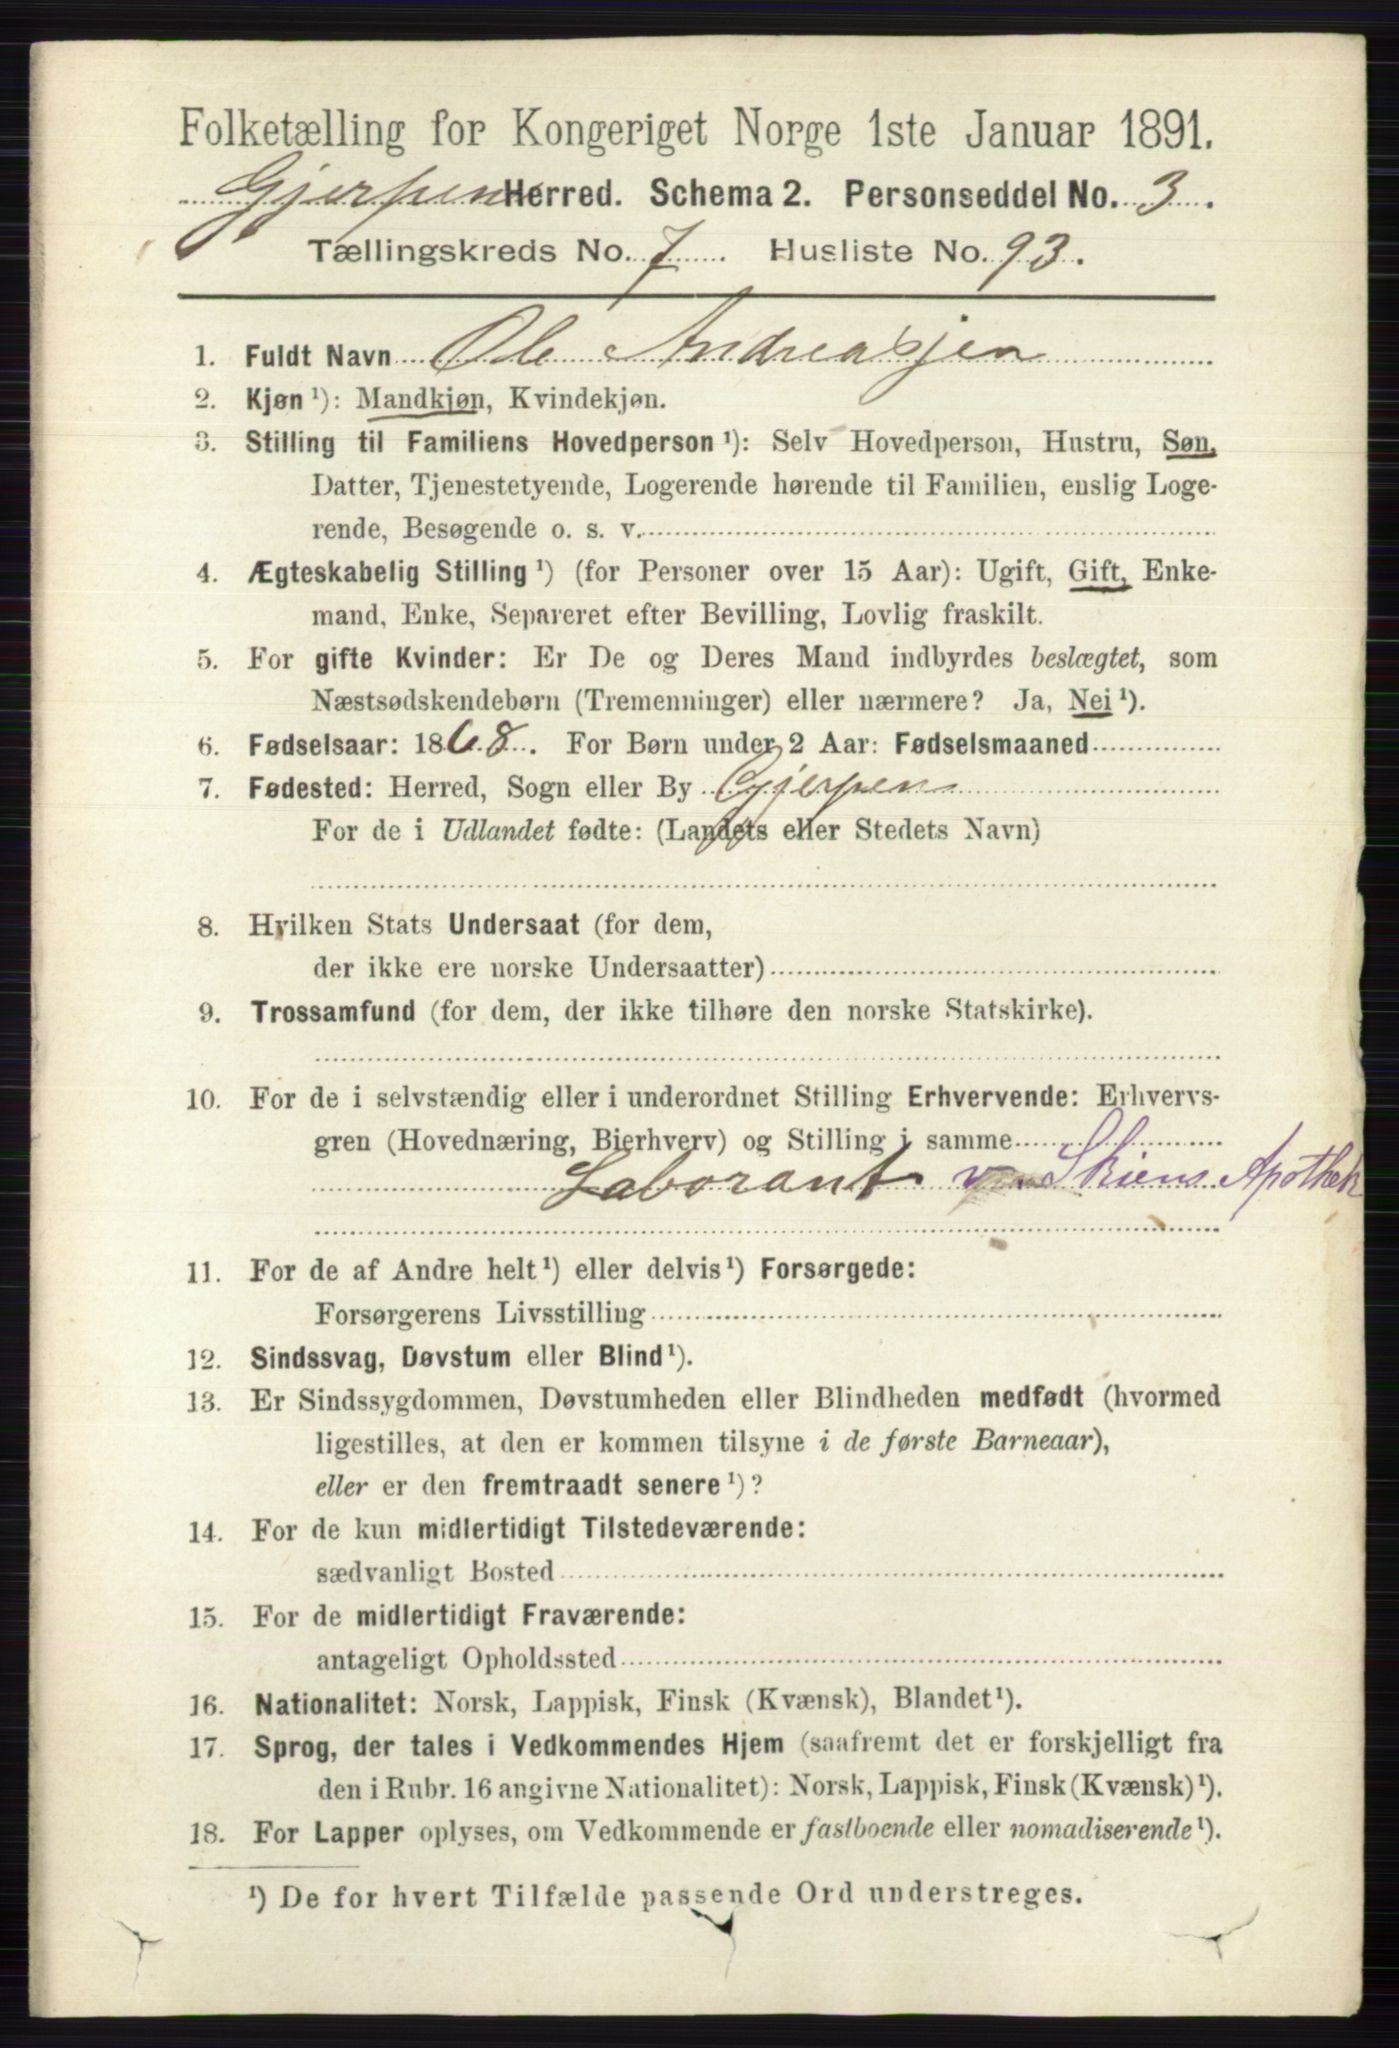 Folketælling for Kongeriget Norge 1ste Januar 1891.
Gjerpen Herred. Schema 2. Personseddel No. 3.
Tællingskreds No. 7 Husliste No. 93.
1. Fuldt Navn Ole Andreassen
2. Kjøn ¹): Mandkjøn, Kvindekjøn.
3. Stilling til Familiens Hovedperson ¹): Selv Hovedperson, Hustru, Søn,
Datter, Tjenestetyende, Logerende hørende til Familien, enslig Loge-
rende, Besøgende o. s. v.
4. Ægteskabelig Stilling ¹) (for Personer over 15 Aar): Ugift, Gift, Enke-
mand, Enke, Separeret efter Bevilling, Lovlig fraskilt.
5. For gifte Kvinder: Er De og Deres Mand indbyrdes beslægtet, som
Næstsødskendebørn (Tremenninger) eller nærmere? Ja, Nei ¹).
6. Fødselsaar: 1868. For Børn under 2 Aar: Fødselsmaaned
7. Fødested: Herred, Sogn eller By Gjerpen
For de i Udlandet fødte: (Landets eller Stedets Navn)
8. Hvilken Stats Undersaat (for dem,
der ikke ere norske Undersaatter)
9. Trossamfund (for dem, der ikke tilhøre den norske Statskirke).
10. For de i selvstændig eller i underordnet Stilling Erhvervende: Erhvervs-
gren (Hovednæring, Bierhverv) og Stilling i samme
Laborant v. Skiens Apothek
11. For de af Andre helt ¹) eller delvis ¹) Forsørgede:
Forsørgerens Livsstilling
12. Sindssvag, Døvstum eller Blind ¹).
13. Er Sindssygdommen, Døvstumheden eller Blindheden medfødt (hvormed
ligestilles, at den er kommen tilsyne i de første Barneaar),
eller er den fremtraadt senere ¹)?
14. For de kun midlertidigt Tilstedeværende:
sædvanligt Bosted
15. For de midlertidigt Fraværende:
antageligt Opholdssted
16. Nationalitet: Norsk, Lappisk, Finsk (Kvænsk), Blandet ¹).
17. Sprog, der tales i Vedkommendes Hjem (saafremt det er forskjelligt fra
den i Rubr. 16 angivne Nationalitet): Norsk, Lappisk, Finsk (Kvænsk) ¹).
18. For Lapper oplyses, om Vedkommende er fastboende eller nomadiserende ¹).
¹) De for hvert Tilfælde passende Ord understreges.